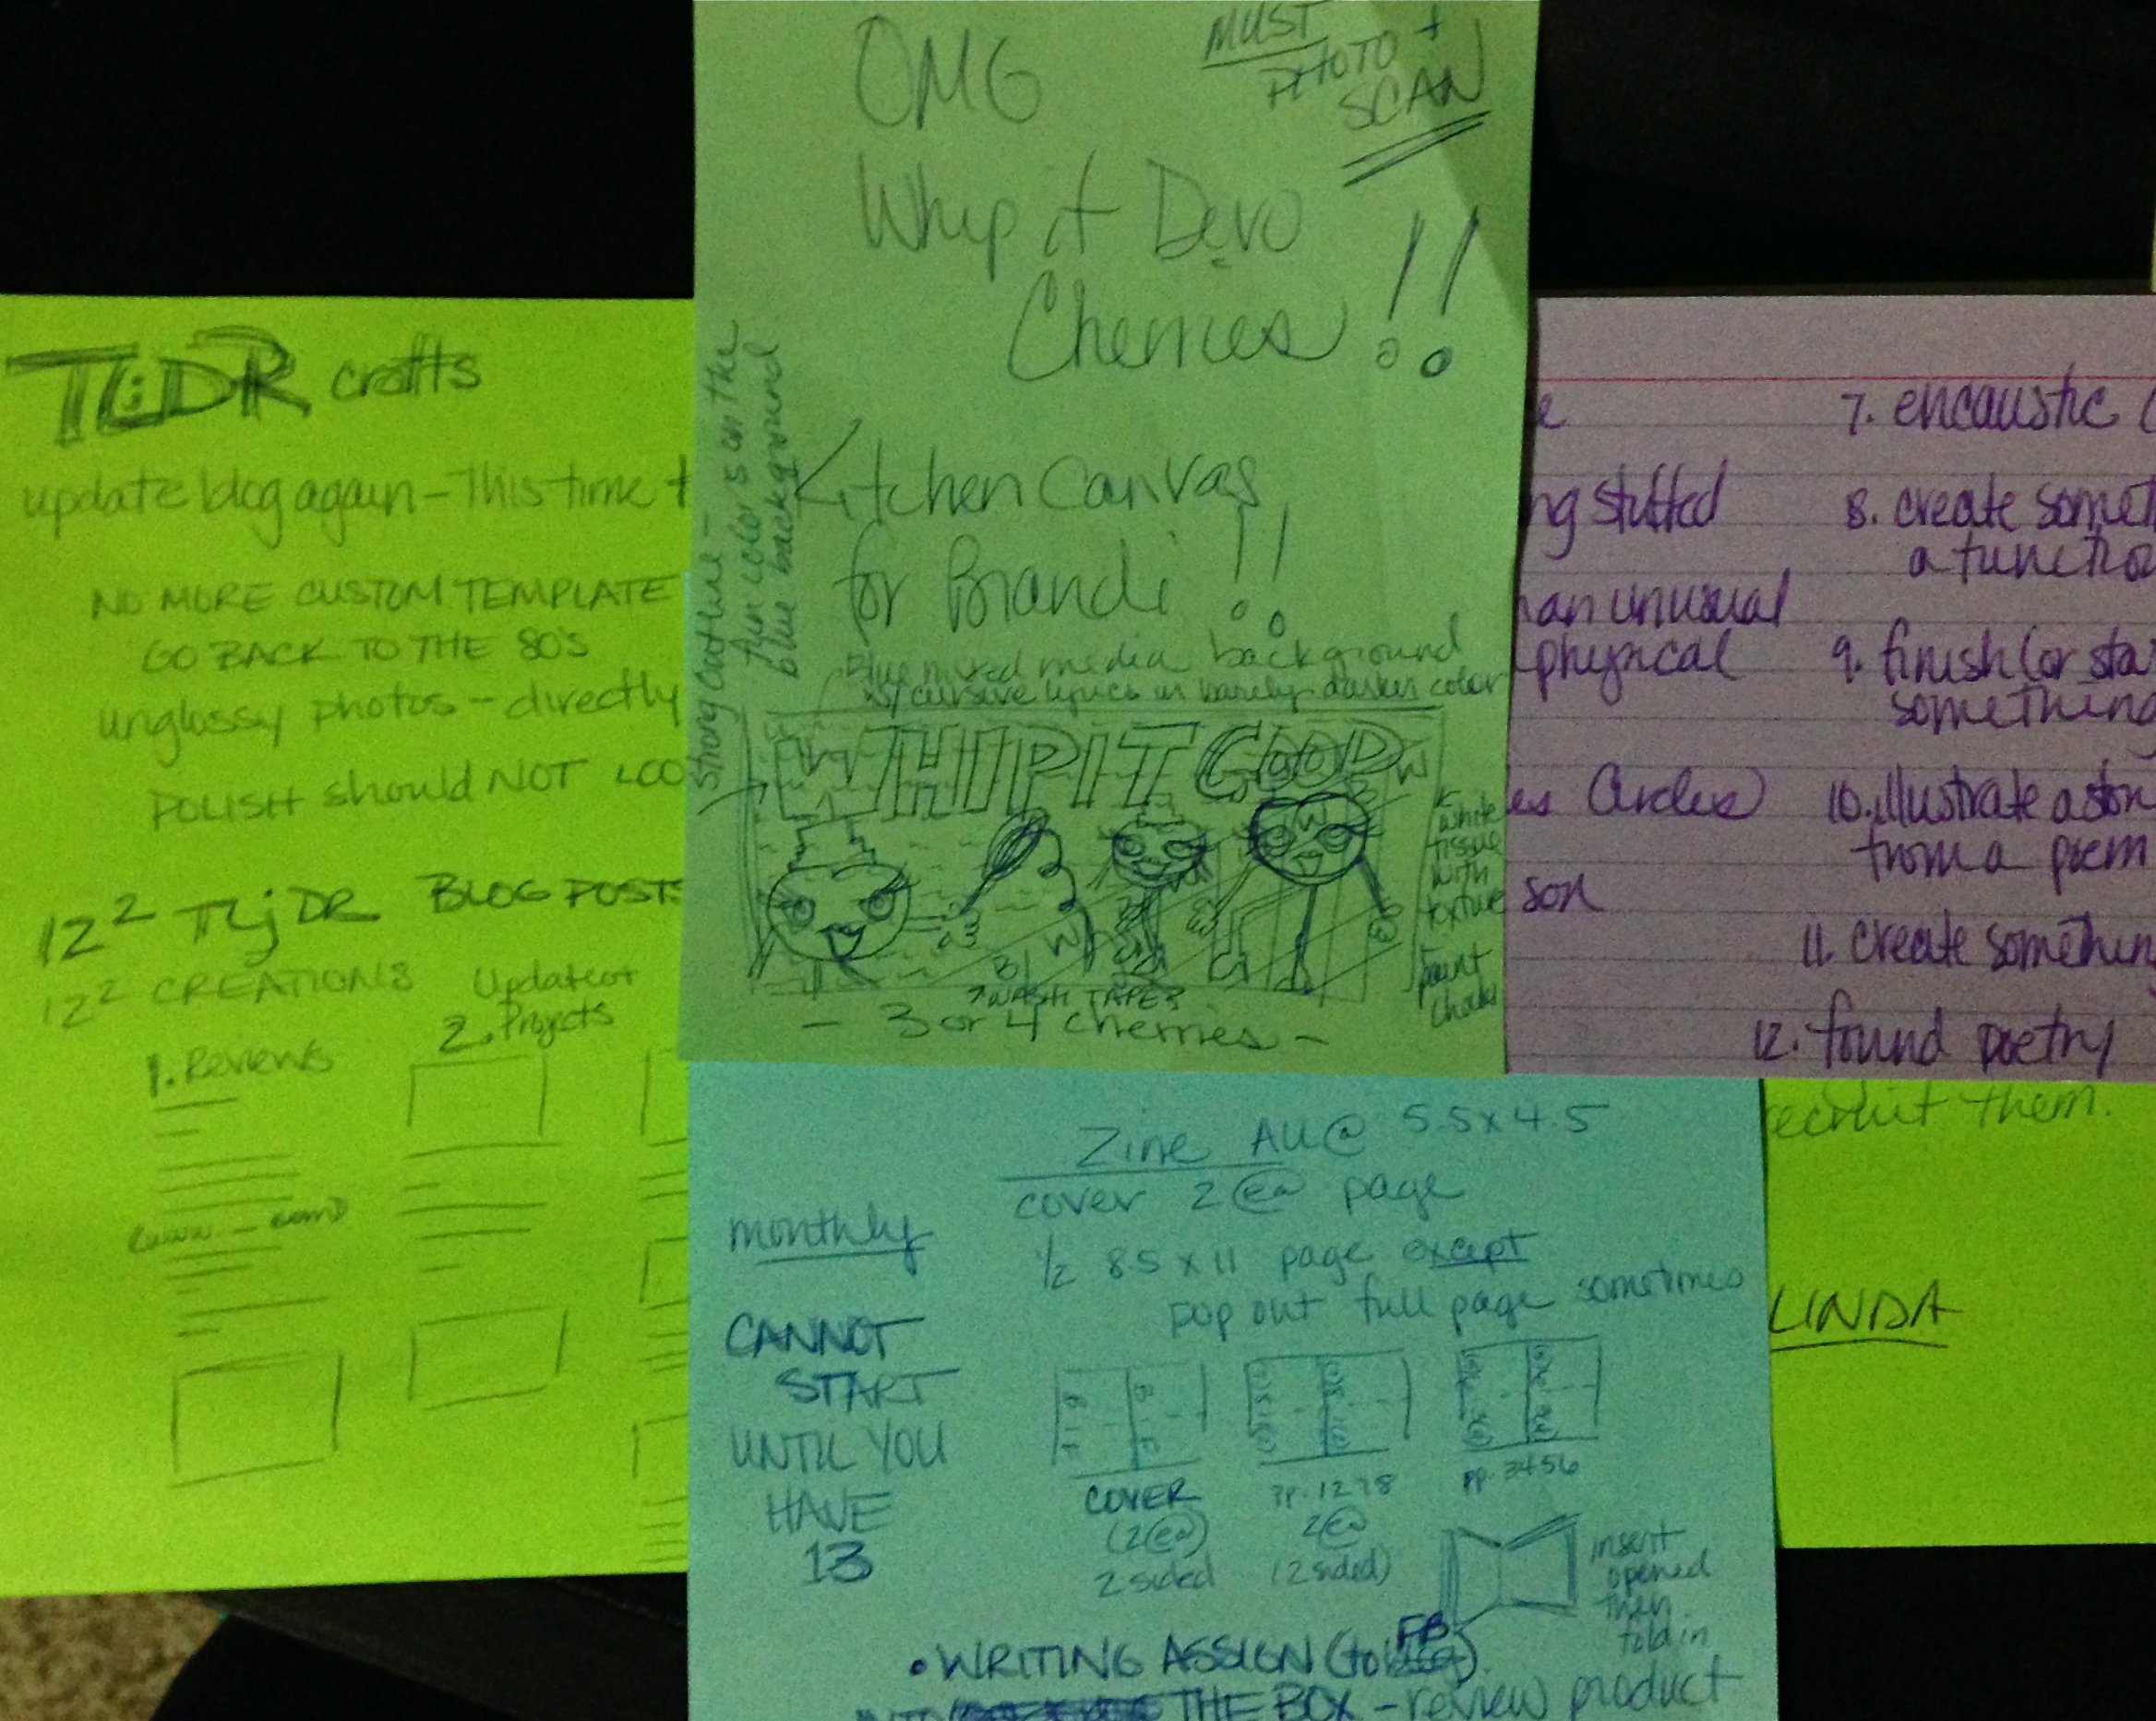 TL;DR crafts
update blog again - This time t
NO MORE CUSTOM TEMPLATE
GO BACK TO THE 80'S
unglossy photos - directly
POLISH should NOT LOO
12² TL;DR BLOG POSTS
12² CREATIONS
1. Reviews
2. Update or
Projects
OMG
MUST
PHOTO +
SCAN
Whip it Devo
Cherries !!
Kitchen Canvas
for Brandi !!
Blue mixed media background
w/ cursive lyrics in barely darker color
Strong Outline -
fun colors on the
blue background
WHIP IT GOOD
W
W
W
Bl
white
tissue
with
texture
paint
chalk
? WASHI TAPE?
- 3 or 4 cherries -
e
ng stuffed
an unusual
physical
es Circles
son
7. encaustic
8. create somet
a functio
9. finish (or sta
something
10. illustrate a stor
from a poem
11. create something
12. found poetry
recruit them.
LINDA
Zine All @ 5.5 x 4.5
cover 2 @ea page
monthly
1/2 8.5 x 11 page except
pop out full page sometimes
CANNOT
START
UNTIL YOU
HAVE
13
COVER
(2@ea)
2 sided
pp. 1278
2@ea
(2 sided)
pp. 3456
insert
opened
then
fold in
• WRITING ASSIGN (to FB)
THE BOX - review product